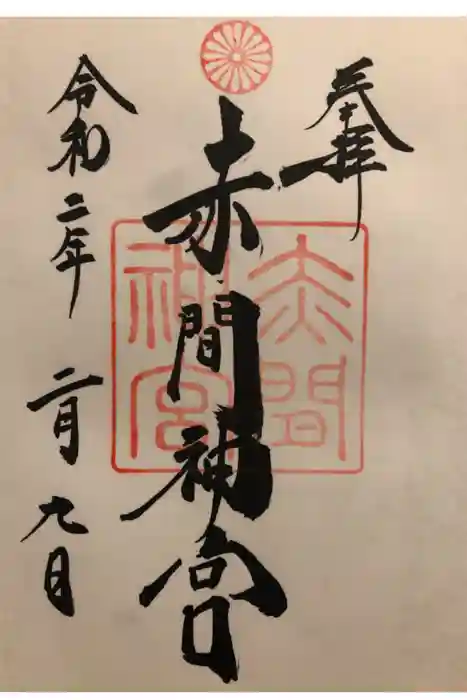 奉拝
赤間神宮
赤間
神宮
令和二年 二月 九日